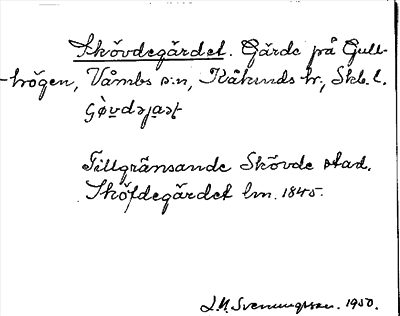 Skövdegärdet. Gärde på Gull-
-högen, Våmbs s:n, Kåkinds hr, Skb. l.
Tillgränsande Skövde stad.
Sköfdegärdet lm. 1845.
J.A. Svenungsson. 1950.